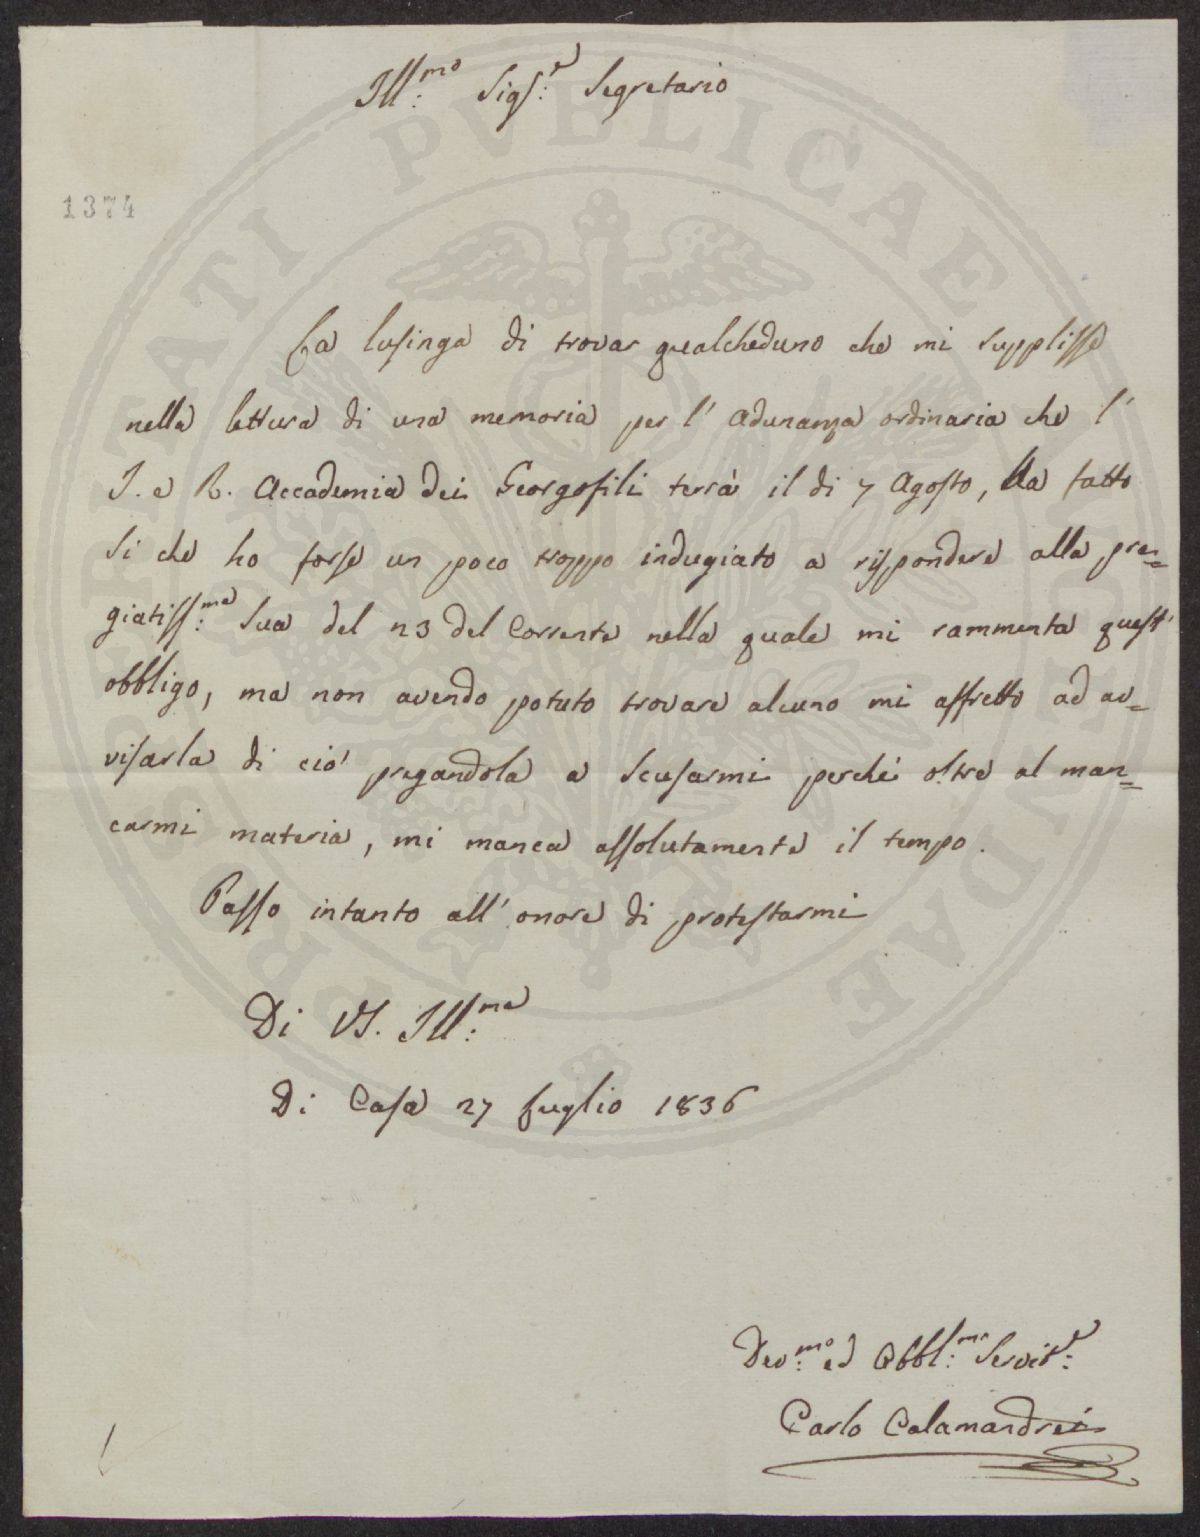 Ill:mo Sigr:e Segretario
1374
La lusinga di trovar qualcheduno che mi supplisse
nella lettura di una memoria per l' adunanza ordinaria che l'
I. e R. Accademia dei Georgofili terrà il di 7 Agosto, ha fatto
si che ho forse un poco troppo indugiato a rispondere alla pre=
giatiss:ma Sua del 23 del Corrente nella quale mi rammenta quest'
obbligo, ma non avendo potuto trovare alcuno mi affretto ad av=
visarla di ciò pregandola a scusarmi perchè oltre al man=
carmi materia, mi manca assolutamente il tempo.
Passo intanto all' onore di protestarmi
Di VS. Ill:ma
Di Casa 27 Luglio 1836
Dev:mo ed Obbl:mo Servit:e
Carlo Calamandrei